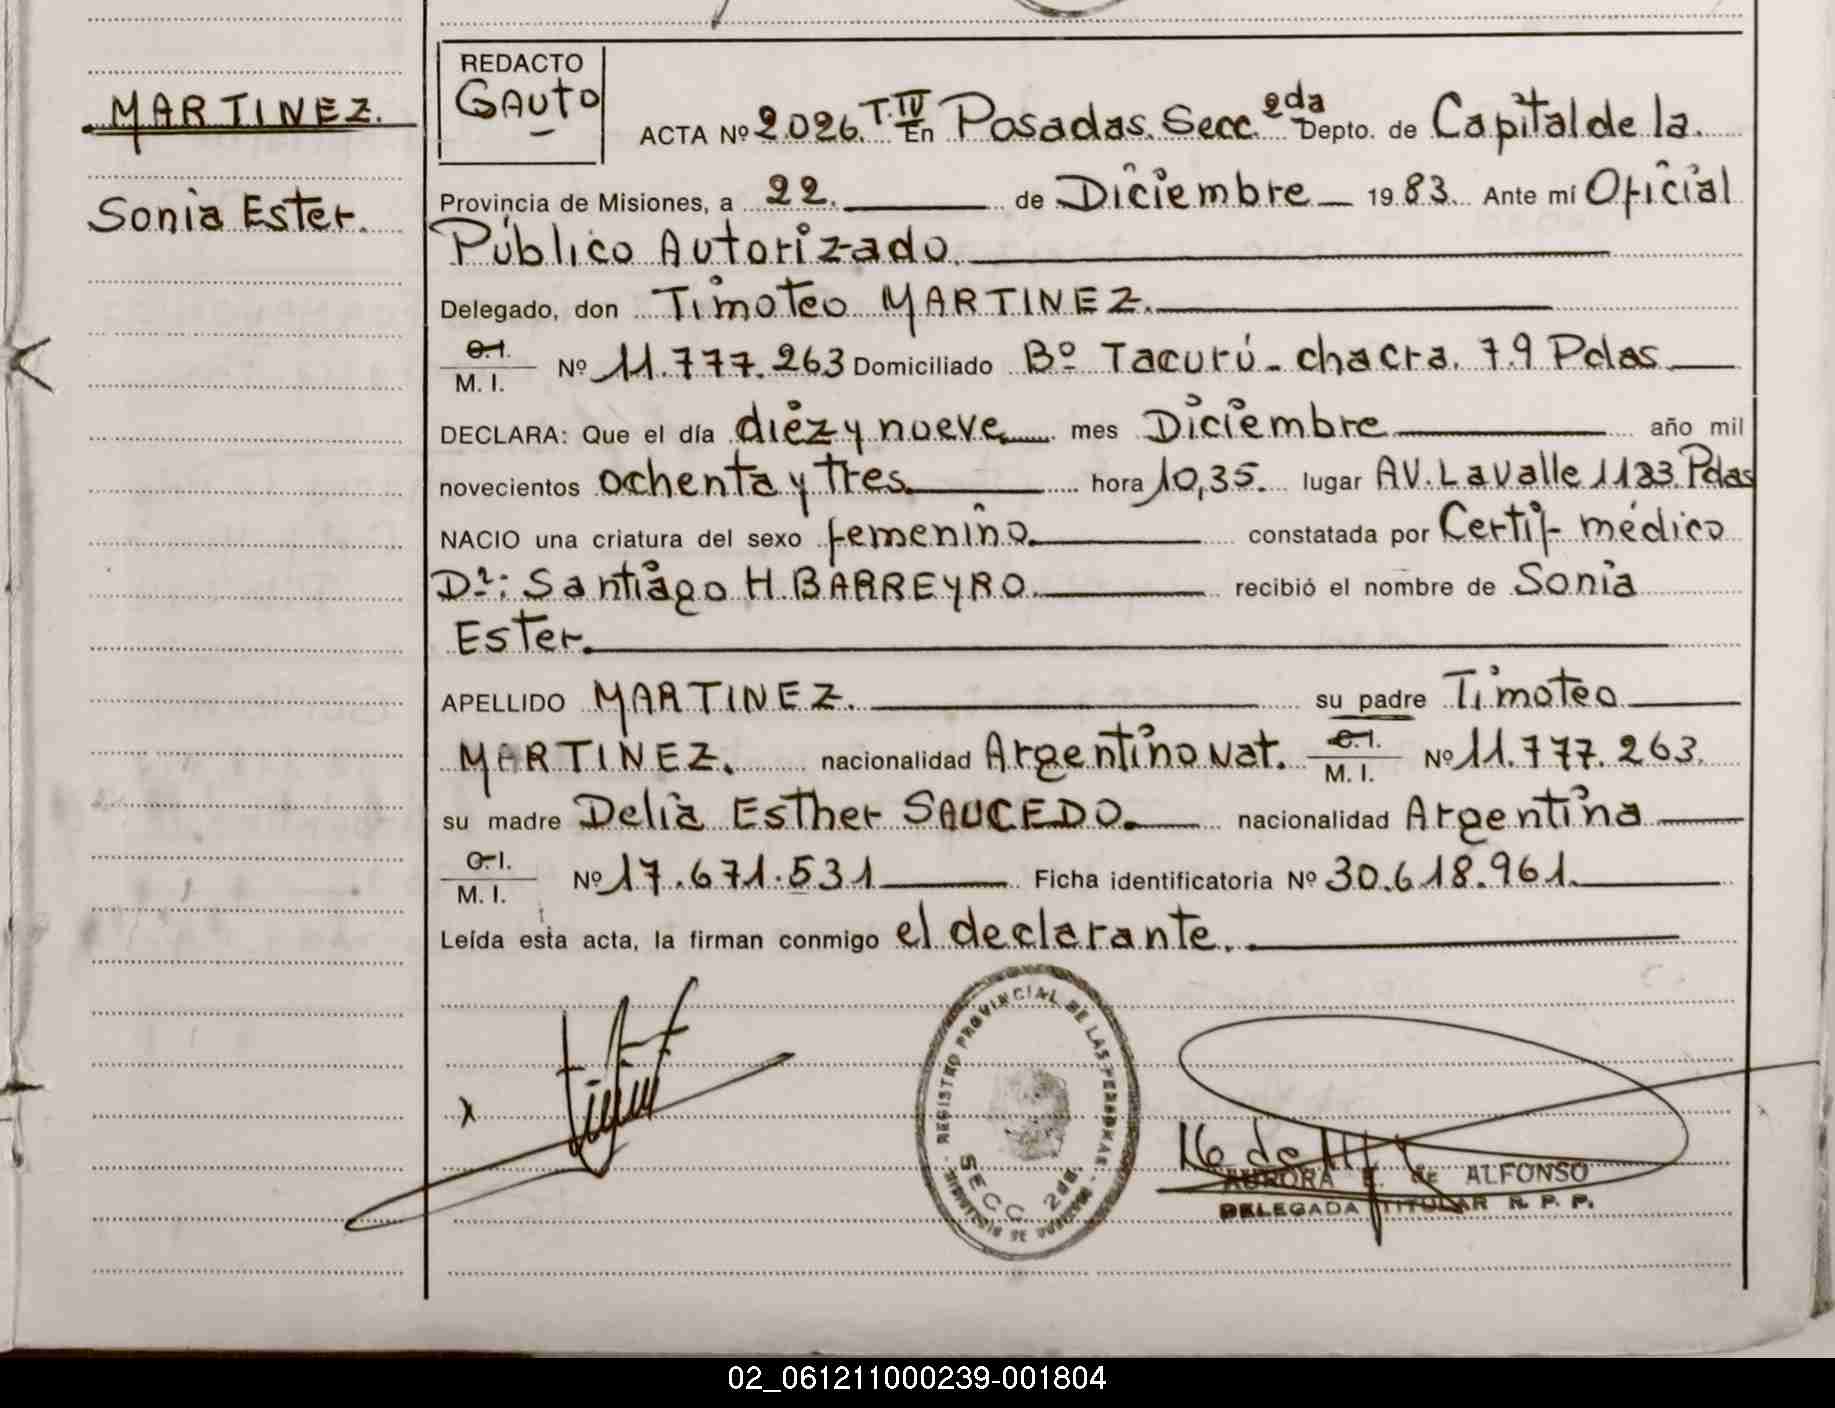 MARTINEZ.
Sonia Ester.
REDACTO
GAUTO
ACTA Nº 2.026. T. IV En Posadas. Secc. 2da Depto. de Capital de la
Provincia de Misiones, a 22. de Diciembre 1983. Ante mí Oficial
Público Autorizado.
Delegado, don Timoteo MARTINEZ.
C.I.
M. I. Nº 11.777.263 Domiciliado Bº Tacurú - chacra. 79 Pdas
DECLARA: Que el día diez y nueve mes Diciembre año mil
novecientos ochenta y tres hora 10,35. lugar AV. Lavalle 1123 Pdas
NACIO una criatura del sexo femenino. constatada por Certif- médico
Dr: Santiago H. BARREYRO. recibió el nombre de Sonia
Ester.
APELLIDO MARTINEZ. su padre Timoteo
MARTINEZ. nacionalidad Argentino Nat. C.I.
M. I. Nº 11.777.263.
su madre Delia Esther SAUCEDO. nacionalidad Argentina
C.I.
M. I. Nº 17.671.531 Ficha identificatoria Nº 30.618.961.
Leída esta acta, la firman conmigo el declarante.
REGISTRO PROVINCIAL DE LAS PERSONAS
SECC. 2da.
AURORA E. DE ALFONSO
DELEGADA TITULAR R. P. P.
02_061211000239-001804